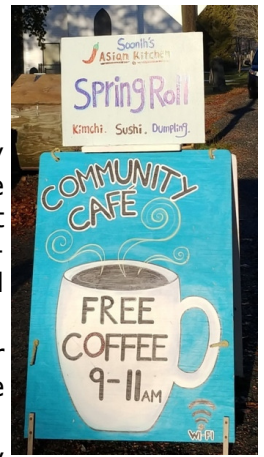 Soonih's
Asian Kitchen
Spring Roll
Kimchi. Sushi. Dumpling.
COMMUNITY
CAFÉ
FREE
COFFEE
9-11AM
Wi-Fi